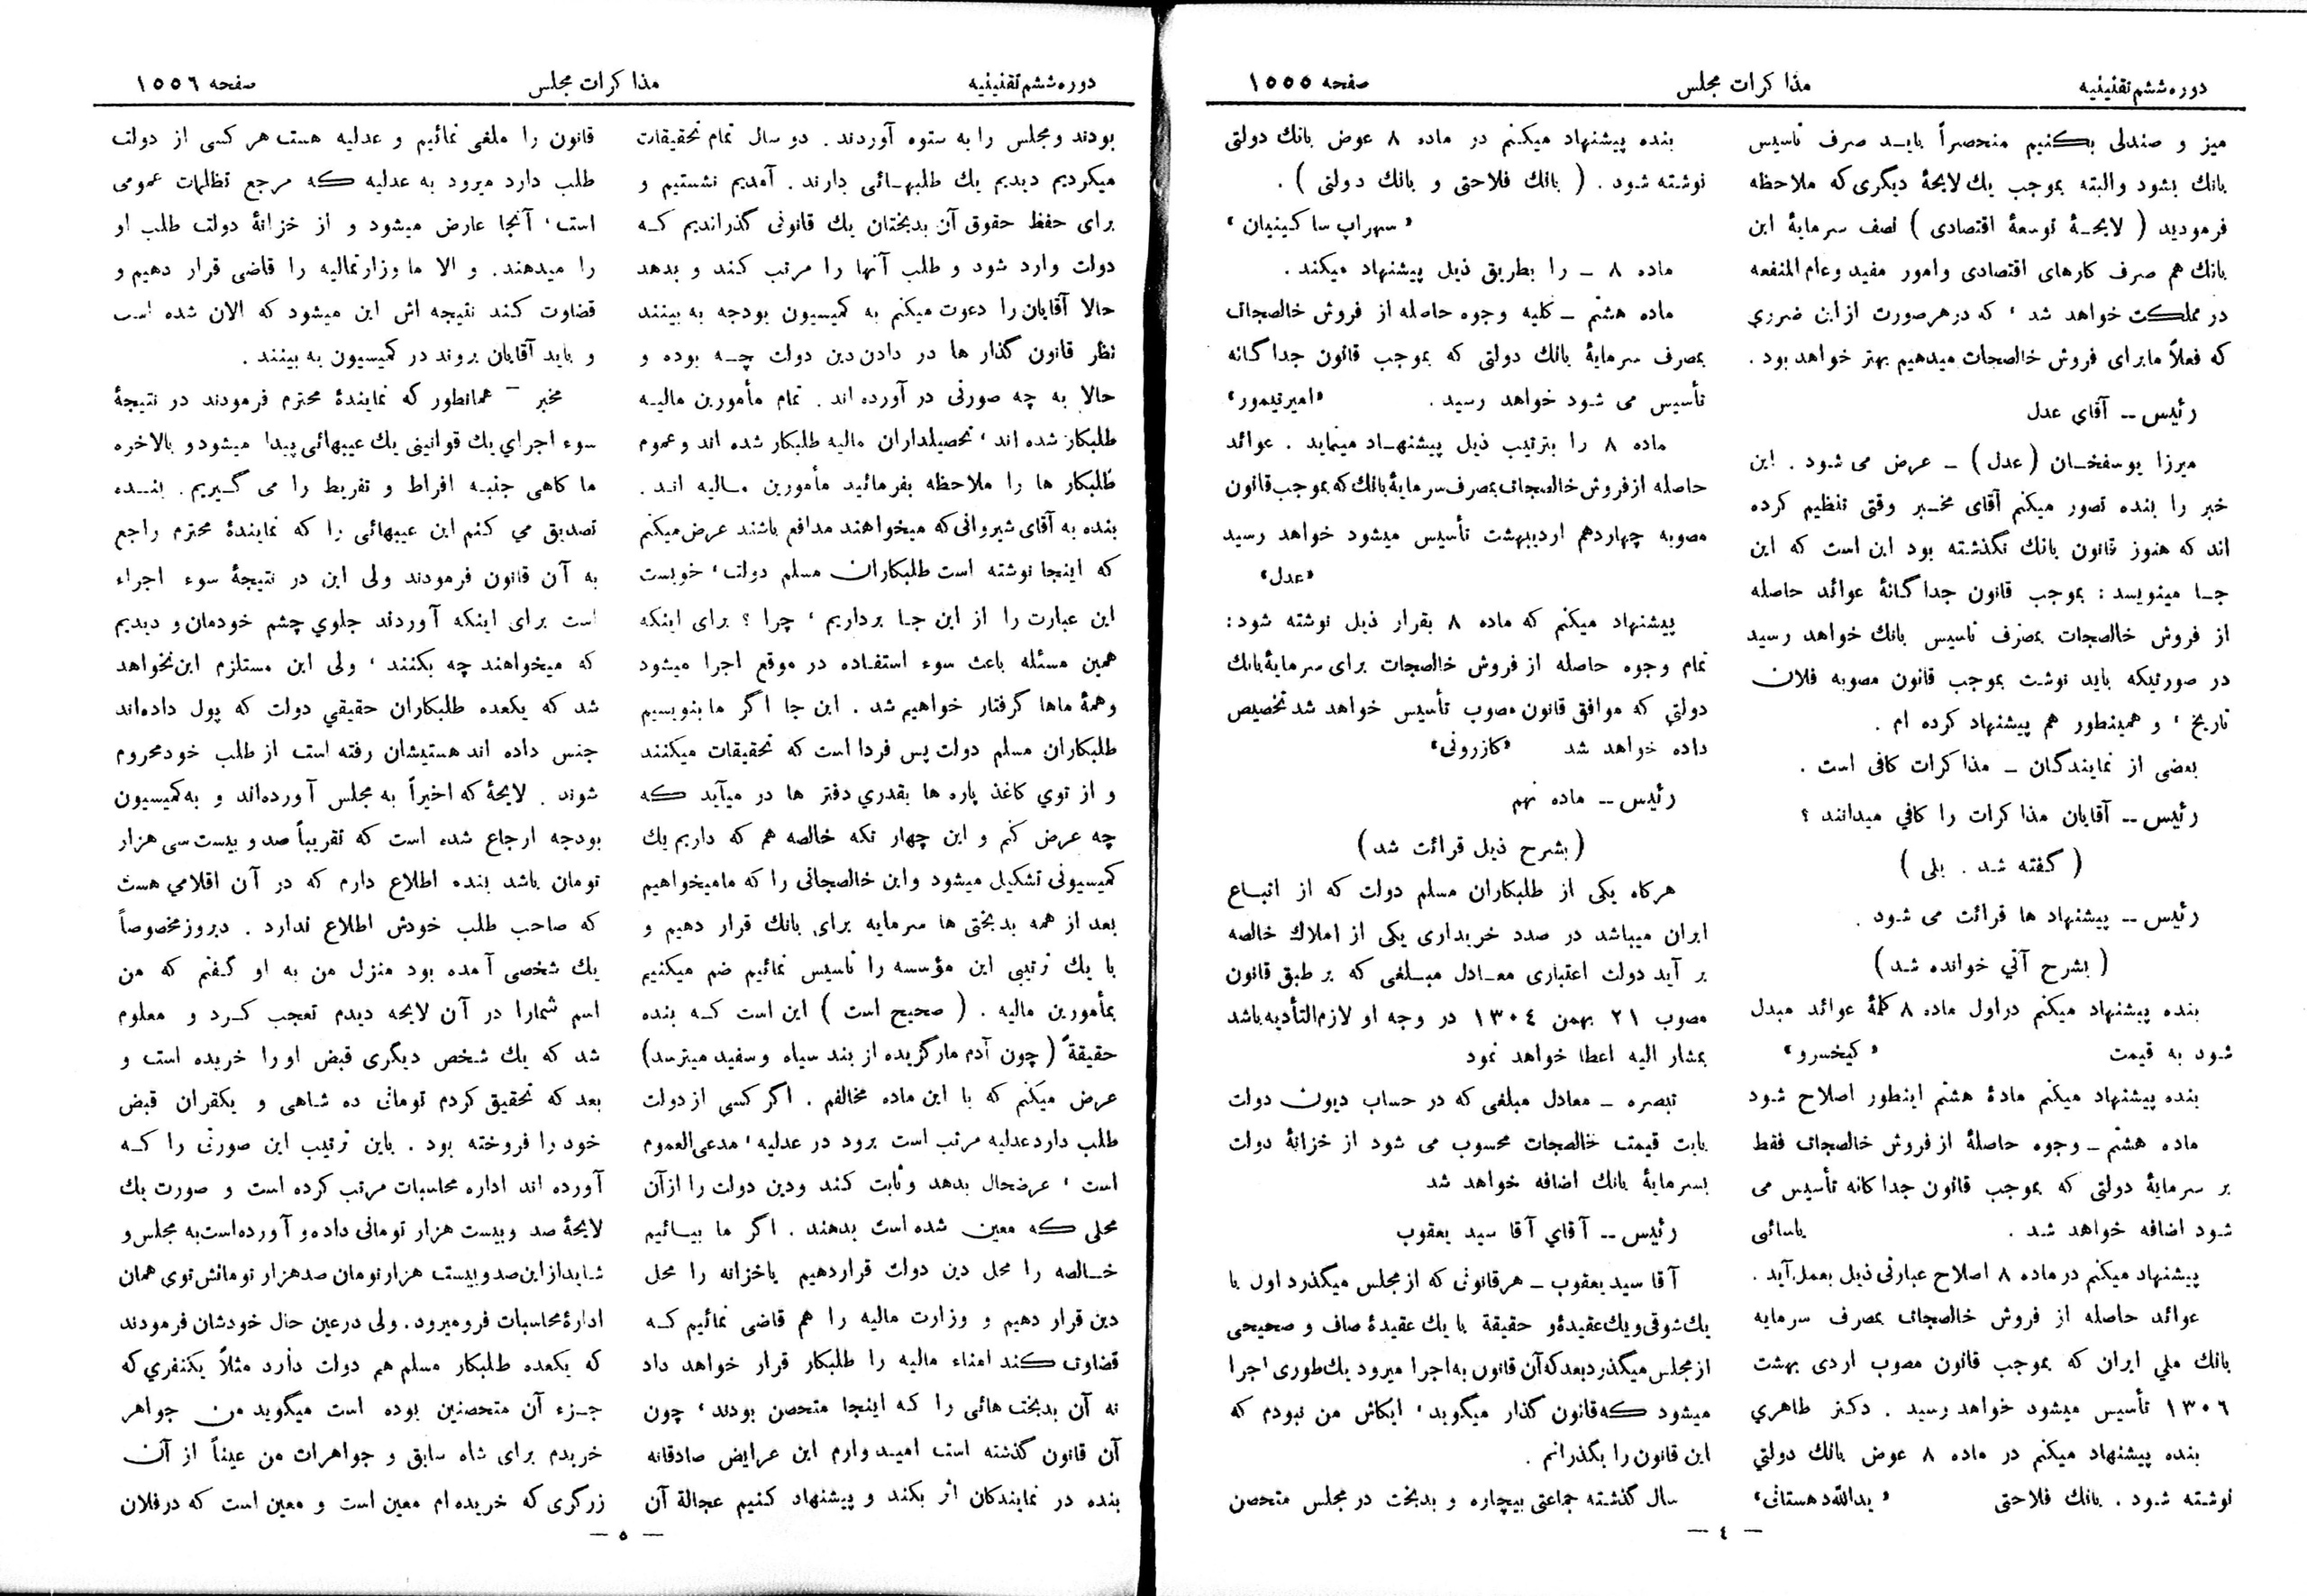 دوره ششم تقنینیه
مذاکرات مجلس
صفحه ۱۵۵۵
میز و صندلی بکنیم منحصراً باید صرف تاسیس
بانك بشود والبته بموجب یك لایحهٔ دیگری که ملاحظه
فرمودید ( لایحهٔ توسعهٔ اقتصادی ) نصف سرمایهٔ این
بانك هم صرف کارهای اقتصادی وامور مفید وعام المنفعه
در مملکت خواهد شد ، که در هرصورت از این ضرری
که فعلاً ما برای فروش خالصجات میدهیم بهتر خواهد بود .
رئیس -- آقای عدل
میرزا یوسفخان (عدل) ـ عرض می شود . این
خبر را بنده تصور میکنم آقای مخبر وقتی تنظیم کرده
اند که هنوز قانون بانك نگذشته بود این است که این
جا مینویسد : بموجب قانون جداگانهٔ عوائد حاصله
از فروش خالصجات بمصرف تاسیس بانك خواهد رسید
در صورتیکه باید نوشت بموجب قانون مصوبه فلان
تاریخ ، و همینطور هم پیشنهاد کرده ام .
بعضی از نمایندگان ـ مذاکرات کافی است .
رئیس -- آقایان مذاکرات را کافي میدانند ؟
( گفته شد . بلی )
رئیس -- پیشنهاد ها قرائت می شود .
( بشرح آتي خوانده شد )
بنده پیشنهاد میکنم در اول ماده ۸ کلمهٔ عوائد مبدل
شود به قیمت « کیخسرو »
بنده پیشنهاد میکنم مادهٔ هشتم اینطور اصلاح شود
ماده هشتم ـ وجوه حاصلهٔ از فروش خالصجات فقط
بر سرمایهٔ دولتی که بموجب قانون جداگانه تأسیس می
شود اضافه خواهد شد . یاسائی
پیشنهاد میکنم در ماده ۸ اصلاح عبارتی ذیل بعمل آید .
عوائد حاصله از فروش خالصجات بمصرف سرمایه
بانك ملي ایران که بموجب قانون مصوب اردی بهشت
۱۳۰۶ تأسیس میشود خواهد رسید . دکتر طاهري
بنده پیشنهاد میکنم در ماده ۸ عوض بانك دولتي
نوشته شود . بانك فلاحتی « یدالله دهستانی »
بنده پیشنهاد میکنم در ماده ۸ عوض بانك دولتی
نوشته شود . ( بانك فلاحتی و بانك دولتی ) .
« سهراب ساکینیان »
ماده ۸ ـ را بطریق ذیل پیشنهاد میکند .
ماده هشتم ـ کلیه وجوه حاصله از فروش خالصجات
بمصرف سرمایهٔ بانك دولتی که بموجب قانون جداگانه
تأسیس می شود خواهد رسید . «امیرتیمور»
ماده ۸ را بترتیب ذیل پیشنهاد مینماید . عوائد
حاصله از فروش خالصجات بمصرف سرمایهٔ بانك که بموجب قانون
مصوبه چهاردهم اردیبهشت تأسیس میشود خواهد رسید
«عدل»
پیشنهاد میکنم که ماده ۸ بقرار ذیل نوشته شود :
تمام وجوه حاصله از فروش خالصجات برای سرمایهٔ بانك
دولتي که موافق قانون مصوب تأسیس خواهد شد تخصیص
داده خواهد شد «کازرونی»
رئیس -- ماده نهم
( بشرح ذیل قرائت شد )
هرگاه یکی از طلبکاران مسلم دولت که از اتباع
ایران میباشد در صدد خریداری یکی از املاك خالصه
بر آید دولت اعتباری معادل مبلغی که بر طبق قانون
مصوب ۲۱ بهمن ۱۳۰۴ در وجه او لازم التأدیه باشد
بمشار الیه اعطا خواهد نمود
تبصره ـ معادل مبلغی که در حساب دیون دولت
بابت قیمت خالصجات محسوب می شود از خزانهٔ دولت
بسرمایهٔ بانك اضافه خواهد شد
رئیس -- آقاي آقا سید یعقوب
آقا سید یعقوب ـ هر قانونی که از مجلس میگذرد اول با
یك شوقی و یك عقیدهٔ و حقیقة با یك عقیدهٔ صاف و صحیحی
از مجلس میگذرد بعد که آن قانون به اجرا میرود یك طوری اجرا
میشود که قانون گذار میگوید ، ایکاش من نبودم که
این قانون را بگذرانم .
سال گذشته جماعتی بیچاره و بدبخت در مجلس متحصن
— ٤ —
دوره ششم تقنینیه
مذاکرات مجلس
صفحه ۱۵۵۶
بودند و مجلس را به ستوه آوردند . دو سال تمام تحقیقات
میکردیم دیدیم یك طلبهائی دارند . آمدیم نشستیم و
برای حفظ حقوق آن بدبختان یك قانونی گذراندیم که
دولت وارد شود و طلب آنها را مرتب کند و بدهد
حالا آقایان را دعوت میکنم به کمیسیون بودجه به بینند
نظر قانون گذار ها در دادن دین دولت چه بوده و
حالا به چه صورتی در آورده اند . تمام مأمورین مالیه
طلبکار شده اند ، تحصیلداران مالیه طلبکار شده اند و عموم
طلبکار ها را ملاحظه بفرمائید مأمورین مالیه اند .
بنده به آقای شیروانی که میخواهند مدافع باشند عرض میکنم
که اینجا نوشته است طلبکاران مسلم دولت ، خوبست
این عبارت را از این جا برداریم ، چرا ؟ برای اینکه
همین مسئله باعث سوء استفاده در موقع اجرا میشود
و همهٔ ماها گرفتار خواهیم شد . این جا اگر ما بنویسیم
طلبکاران مسلم دولت پس فردا است که تحقیقات میکنند
و از توي کاغذ پاره ها بقدري دفتر ها در میآید که
چه عرض کنم و این چهار تکه خالصه هم که داریم یك
کمیسیونی تشکیل میشود و این خالصجاتی را که ما میخواهیم
بعد از همه بدبختی ها سرمایه برای بانك قرار دهیم و
با یك ترتیبی این مؤسسه را تاسیس نمائیم ضم میکنیم
بمأمورین مالیه . ( صحیح است ) این است که بنده
حقیقةً ( چون آدم مار گزیده از بند سیاه و سفید میترسد )
عرض میکنم که با این ماده مخالفم . اگر کسی از دولت
طلب دارد عدلیه مرتب است برود در عدلیه ، مدعی العموم
است ، عرضحال بدهد و ثابت کند و دین دولت را از آن
محلی که معین شده است بدهند . اگر ما بیائیم
خالصه را محل دین دولت قرار دهیم یا خزانه را محل
دین قرار دهیم و وزارت مالیه را هم قاضی نمائیم که
قضاوت کند امناء مالیه را طلبکار قرار خواهد داد
نه آن بدبخت هائی را که اینجا متحصن بودند ، چون
آن قانون گذشته است امیدوارم این عرایض صادقانه
بنده در نمایندگان اثر بکند و پیشنهاد کنیم عجالة آن
قانون را ملغی نمائیم و عدلیه هست هر کسی از دولت
طلب دارد میرود به عدلیه که مرجع تظلمات عمومی
است ، آنجا عارض میشود و از خزانهٔ دولت طلب او
را میدهند . و الا ما وزارتمالیه را قاضی قرار دهیم و
قضاوت کند نتیجه اش این میشود که الان شده است
و باید آقایان بروند در کمیسیون به بینند .
مخبر ـ همانطور که نمایندهٔ محترم فرمودند در نتیجهٔ
سوء اجراي یك قوانینی یك عیبهائی پیدا میشود و بالاخره
ما گاهی جنبه افراط و تفریط را می گیریم . بنده
تصدیق مي کنم این عیبهائی را که نمایندهٔ محترم راجع
به آن قانون فرمودند ولی این در نتیجهٔ سوء اجراء
است برای اینکه آوردند جلوي چشم خودمان و دیدیم
که میخواهند چه بکنند ، ولی این مستلزم این نخواهد
شد که یکعده طلبکاران حقیقي دولت که پول داده‌اند
جنس داده اند هستیشان رفته است از طلب خود محروم
شوند . لایحهٔ که اخیراً به مجلس آورده‌اند و به کمیسیون
بودجه ارجاع شده است که تقریباً صد و بیست سی هزار
تومان باشد بنده اطلاع دارم که در آن اقلامي هست
که صاحب طلب خودش اطلاع ندارد . دیروز مخصوصاً
یك شخصی آمده بود منزل من به او گفتم که من
اسم شما را در آن لایحه دیدم تعجب کرد و معلوم
شد که یك شخص دیگری قبض او را خریده است و
بعد که تحقیق کردم تومانی ده شاهی و یکقران قبض
خود را فروخته بود . باین ترتیب این صورتی را که
آورده اند اداره محاسبات مرتب کرده است و صورت یك
لایحهٔ صد و بیست هزار تومانی داده و آورده است به مجلس و
شاید از این صد و بیست هزار تومان صد هزار تومانش توی همان
ادارهٔ محاسبات فرو میرود . ولی در عین حال خودشان فرمودند
که یکعده طلبکار مسلم هم دولت دارد مثلاً یکنفري که
جزء آن متحصنین بوده است میگوید من جواهر
خریدم برای شاه سابق و جواهرات من عیناً از آن
زرگری که خریده ام معین است و معین است که در فلان
— ٥ —